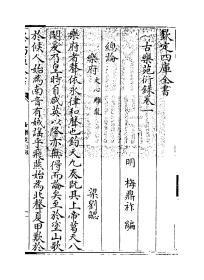 欽定四庫全書
古樂苑衍錄卷一
明 梅鼎祚 編
總論
樂府 文心雕龍 梁劉勰
樂府者聲依永律和聲也鈞天九奏既其上帝葛天八
闋爰乃皇時自咸英以降亦無得而論矣至於塗山歌
於候人始為南音有娀謠乎飛燕始為北聲夏甲歎於